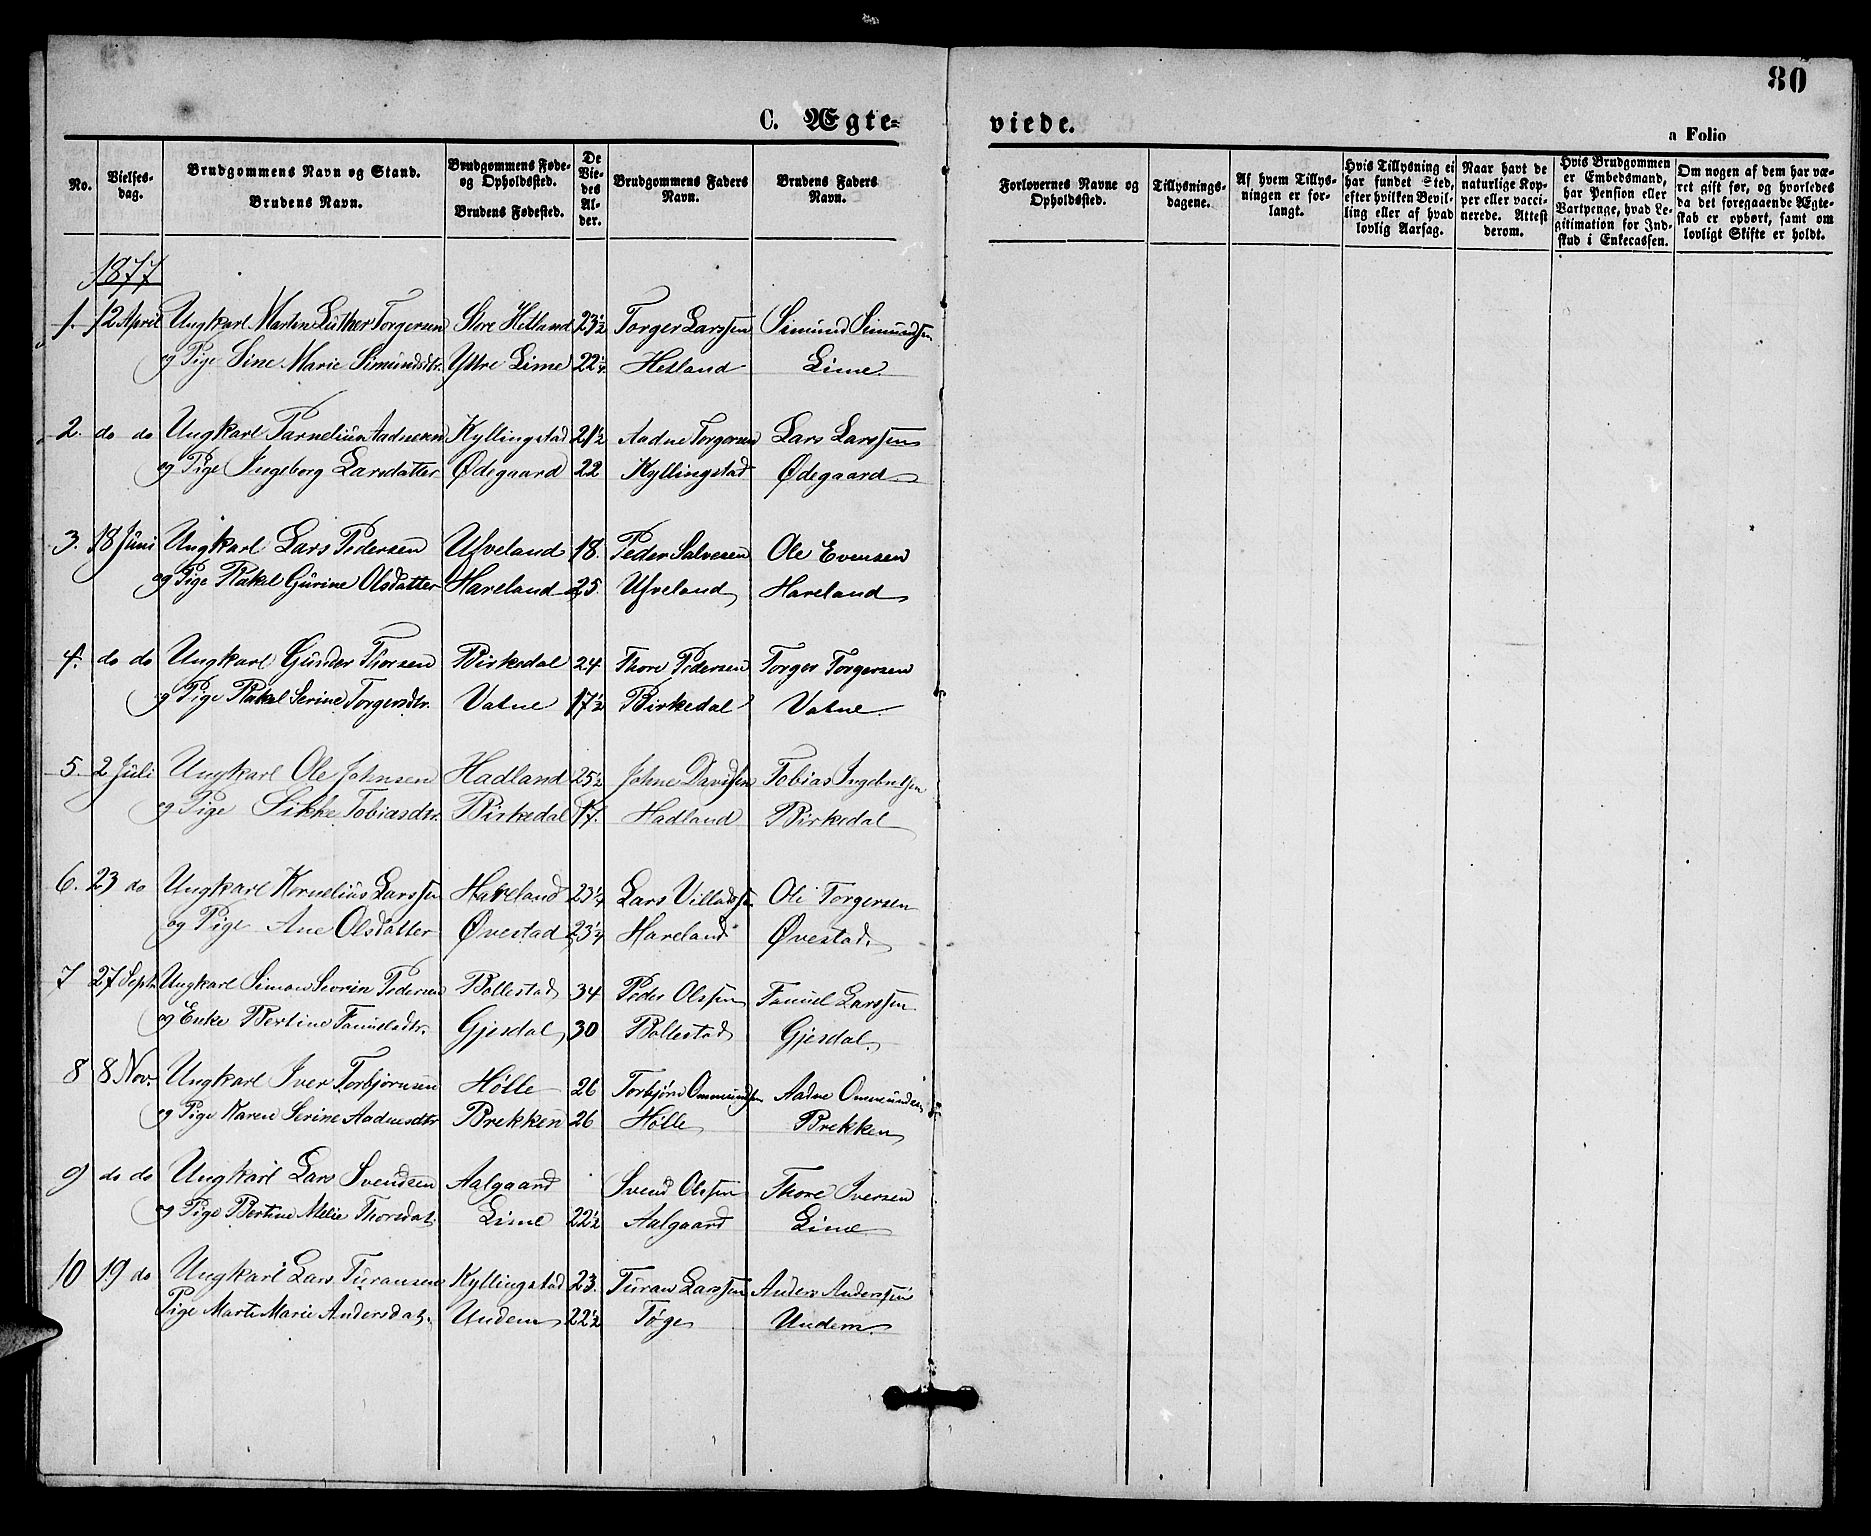 80
C. Ægte=
viede.
a Folio
No.
Vielses-
dag.
Brudgommens Navn og Stand.
Brudens Navn.
Brudgommens Føde-
og Opholdsted.
Brudens Fødested.
De
Vie-
des
Al-
der.
Brudgommens Faders
Navn.
Brudens Faders
Navn.
Forlovernes Navne og
Opholdsted.
Tillysnings-
dagene.
Af hvem Tillys-
ningen er for-
langt.
Hvis Tillysning ei
har fundet Sted,
efter hvilken Bevil-
ling eller af hvad
lovlig Aarsag.
Naar havt de
naturlige Kop-
per eller vacci-
nerede. Attest
derom.
Hvis Brudgommen
er Embedsmand,
har Pension eller
Vartpenge, hvad Le-
gitimation for Ind-
skud i Enkecassen.
Om nogen af dem har væ-
ret gift før, og hvorledes
da det foregaaende Ægte-
skab er ophørt, samt om
lovligt Skifte er holdt.
1877
1. 12 April Ungkarl Martin Luther Torgersen Store Hetland 23½ Torger Larssen Simund Simundsen
og Pige Sine Marie Simundsdtr. Yttre Lime 22¼ Hetland Lime.
2. do do Ungkarl Parnelius Aadnesen Kyllingstad 21½ Aadne Torgersen Lars Larssen
og Pige Ingeborg Larsdatter Ødegaard 22 Kyllingstad Ødegaard
3. 18 Juni Ungkarl Lars Pedersen Ufveland 18. Peder Salvesen Ole Evensen
og Pige Rakel Gurine Olsdatter Haveland 25. Ufveland Haveland
4. do do Ungkarl Gunder Thorsen Birkedal 24 Thore Pedersen Torger Torgersen
og Pige Rakel Serine Torgersdtr. Vatne 17½ Birkedal Vatne.
5. 2 Juli Ungkarl Ole Johnsen Hadland 25½ Johne Davidsen Tobias Ingebretsen
og Pige Sikke Tobiasdtr. Birkedal 17. Hadland Birkedal
6. 23 do Ungkarl Kornelius Larssen Haveland 23¼ Lars Villadssen Ole Torgersen
og Pige Ane Olsdatter Øvestad 23¼ Haveland Øvestad.
7 27 Septr. Ungkarl Simon Severin Pedersen Bollestad 34 Peder Olssen Famuel Larssen
og Enke Bertine Famuelsdtr. Gjesdal 30 Bollestad Gjesdal.
8 8 Nov. Ungkarl Iver Torbjørnsen Hølle 26 Torbjørn Ommundsen Aadne Ommundsen
og Pige Karen Serine Aadnesdtr Brekken 26 Hølle Brekken
9 do do Ungkarl Lars Svendsen Aalgaard Svend Olssen Thore Iversen
og Pige Bertine Malie Thorsdat. Lime 22½ Aalgaard Lime
10 19 do Ungkarl Lars Turansen Kyllingstad 23. Turan Larssen Anders Anderssen
Pige Marte Marie Andersdat. Undem 22½ Tøge Undem.